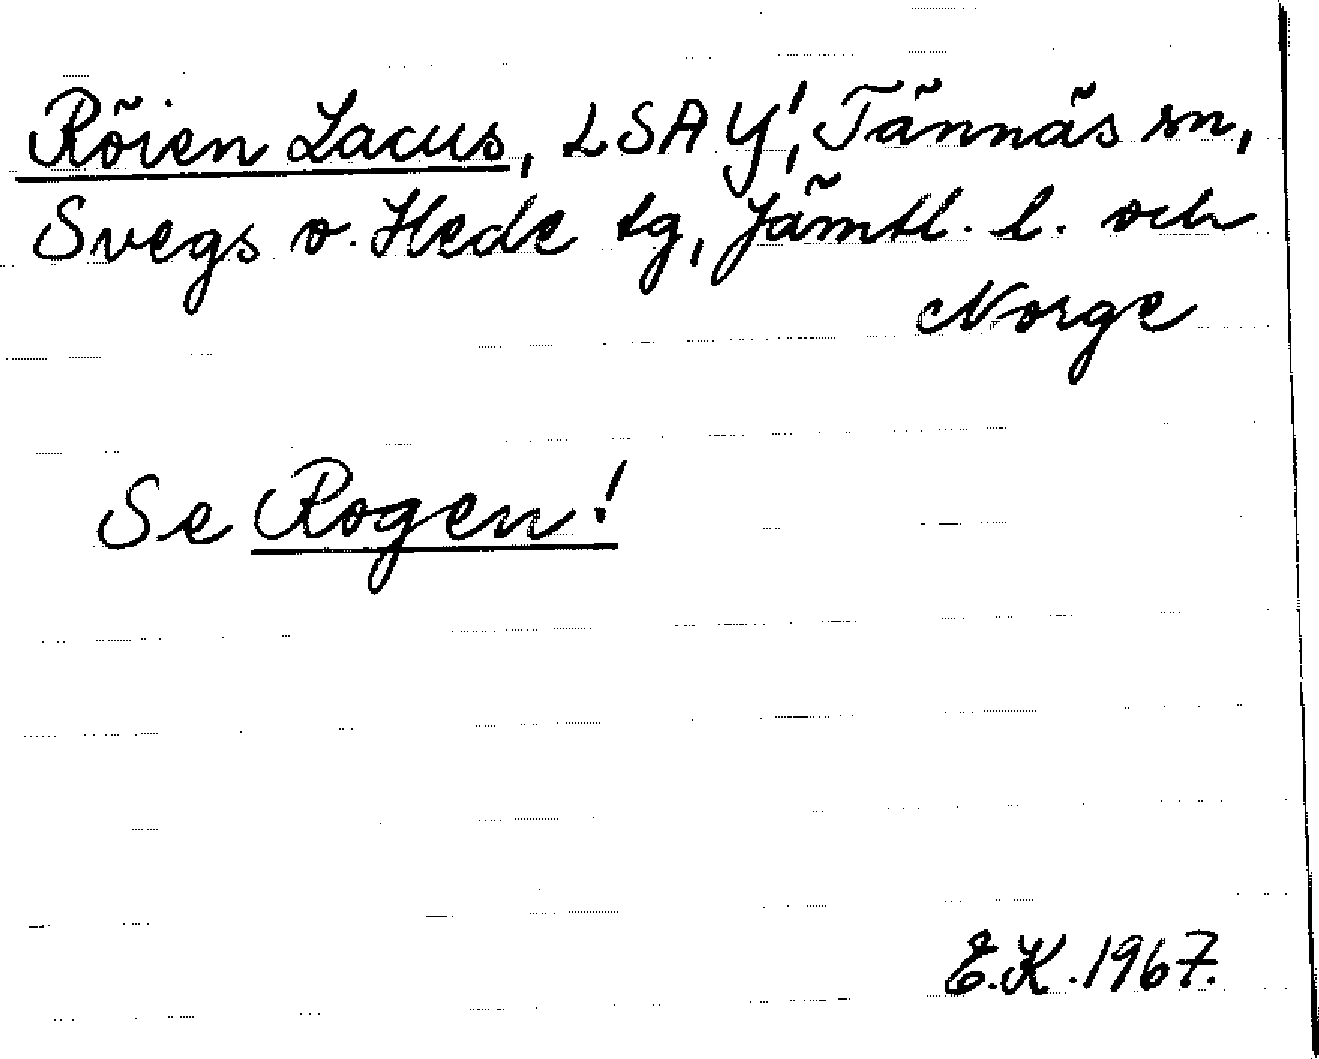 Röien Lacus, LSAY!, Tännäs sn,
Svegs o. Hede tg, Jämtl. l. och
Norge
Se Rogen!
E.K. 1967.